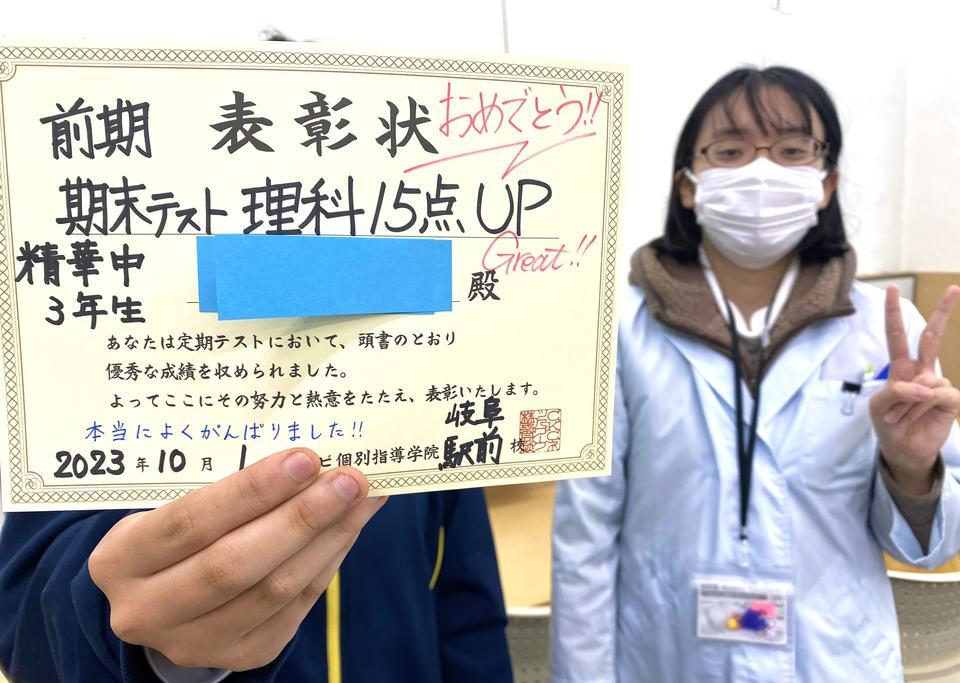 前期 表彰状
おめでとう!!
期末テスト 理科 15点 UP
Great!!
精華中
3年生
殿
あなたは定期テストにおいて、頭書のとおり
優秀な成績を収められました。
よってここにその努力と熱意をたたえ、表彰いたします。
本当によくがんばりました!!
2023年10月1
ビ個別指導学院 岐阜駅前 校